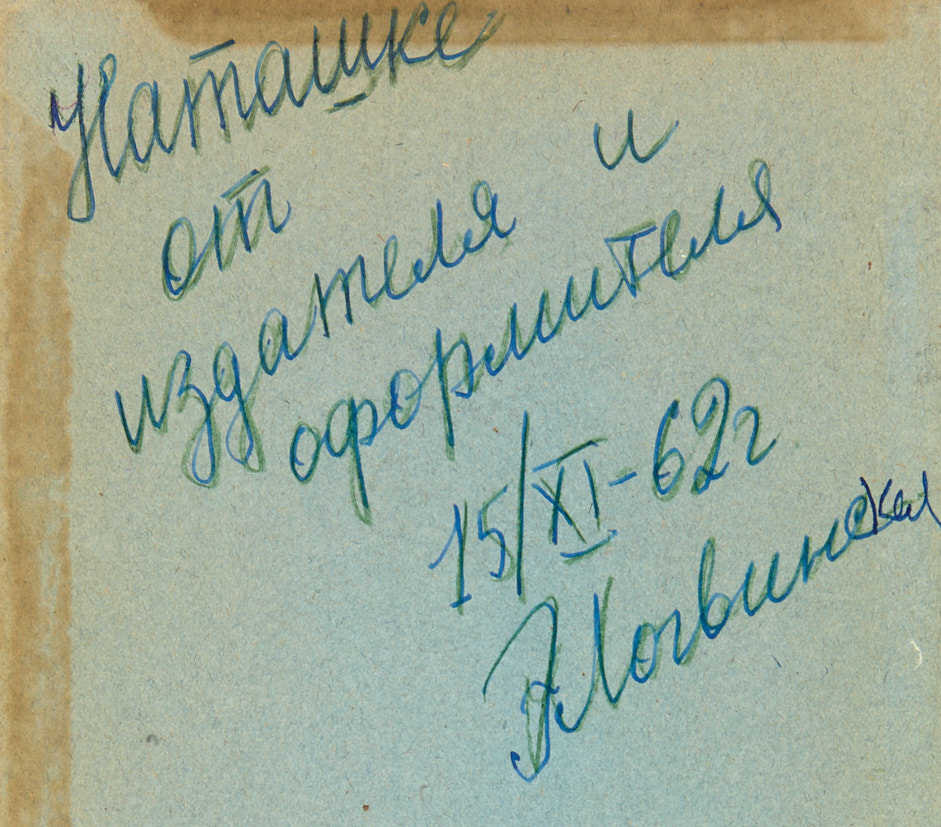 Наташке
от
издателя и
оформителя
15/XI-62г
Э Логвинская